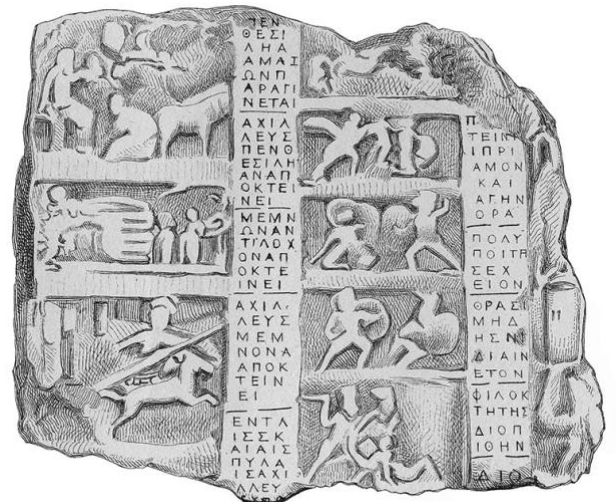 ΠΕΝ
ΘΕΣΙ
ΛΗΑ
ΑΜΑΣ
ΩΝΠ
ΑΡΑΓΙ
ΝΕΤΑΙ
ΑΧΙΛ
ΛΕΥΣ
ΠΕΝΘ
ΕΣΙΛΗ
ΑΝΑΠ
ΟΚΤΕΙ
ΝΕΙ
ΜΕΜΝ
ΩΝΑΝ
ΤΙΛΟΧ
ΟΝΑΠ
ΟΚΤΕ
ΙΝΕΙ
ΑΧΙΛ
ΛΕΥΣ
ΜΕΜ
ΝΟΝΑ
ΑΠΟΚ
ΤΕΙΝ
ΕΙ
ΕΝΤΑ
ΙΣΣΚ
ΑΙΑΙΣ
ΠΥΛΑ
ΙΣΑΧΙ
ΛΛΕΥ
Π
ΤΕΙΝ
ΙΠΡΙ
ΑΜΟΝ
ΚΑΙ
ΑΓΗΝ
ΟΡΑ
ΠΟΛΥ
ΠΟΙΤΗ
ΣΕΧ
ΕΙΟΝ
ΘΡΑΣ
ΜΗΔ
ΗΣΝΙ
ΔΙΑΙΝ
ΕΤΟΝ
ΦΙΛΟΚ
ΤΗΤΗΣ
ΔΙΟΠ
ΙΘΗΝ
ΔΙΟ